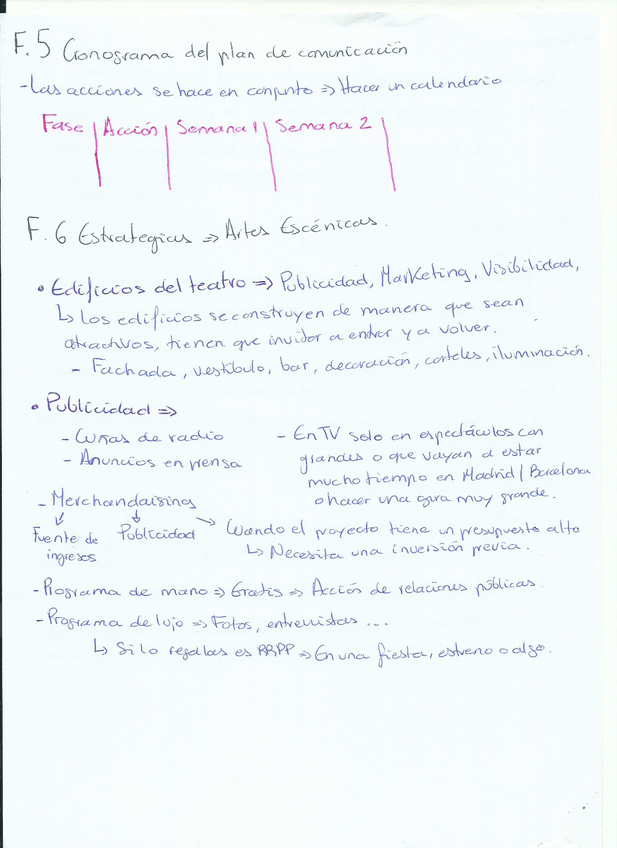 F.5 Cronograma del plan de comunicación
- Las acciones se hace en conjunto => Hacer un calendario
Fase | Acción | Semana 1 | Semana 2 |
F.6 Estrategias => Artes Escénicas.
• Edificios del teatro => Publicidad, Marketing, Visibilidad,
↳ Los edificios se construyen de manera que sean
atractivos, tienen que invitar a entrar y a volver.
- Fachada, vestíbulo, bar, decoración, carteles, iluminación.
• Publicidad =>
- Cuñas de radio
- Anuncios en prensa
- En TV solo en espectáculos con
grandes o que vayan a estar
mucho tiempo en Madrid / Barcelona
o hacer una gira muy grande.
- Merchandaising
↙ ↓ ↘
Fuente de ingresos
Publicidad
Cuando el proyecto tiene un presupuesto alto
↳ Necesita una inversión previa.
- Programa de mano => Gratis => Acción de relaciones públicas.
- Programa de lujo => Fotos, entrevistas ...
↳ Si lo regalas es RRPP => En una fiesta, estreno o algo.